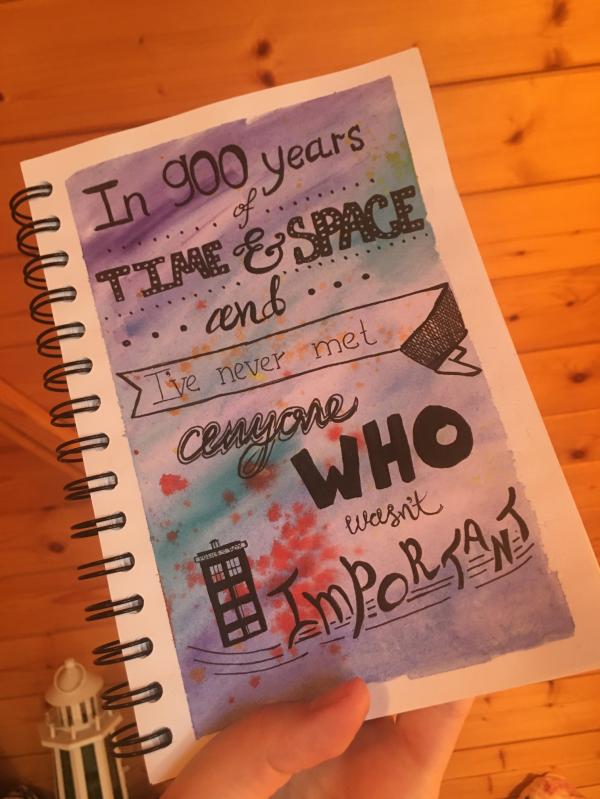 In 900 years
of
TIME & SPACE
and
I've never met
anyone
WHO
wasn't
IMPORTANT